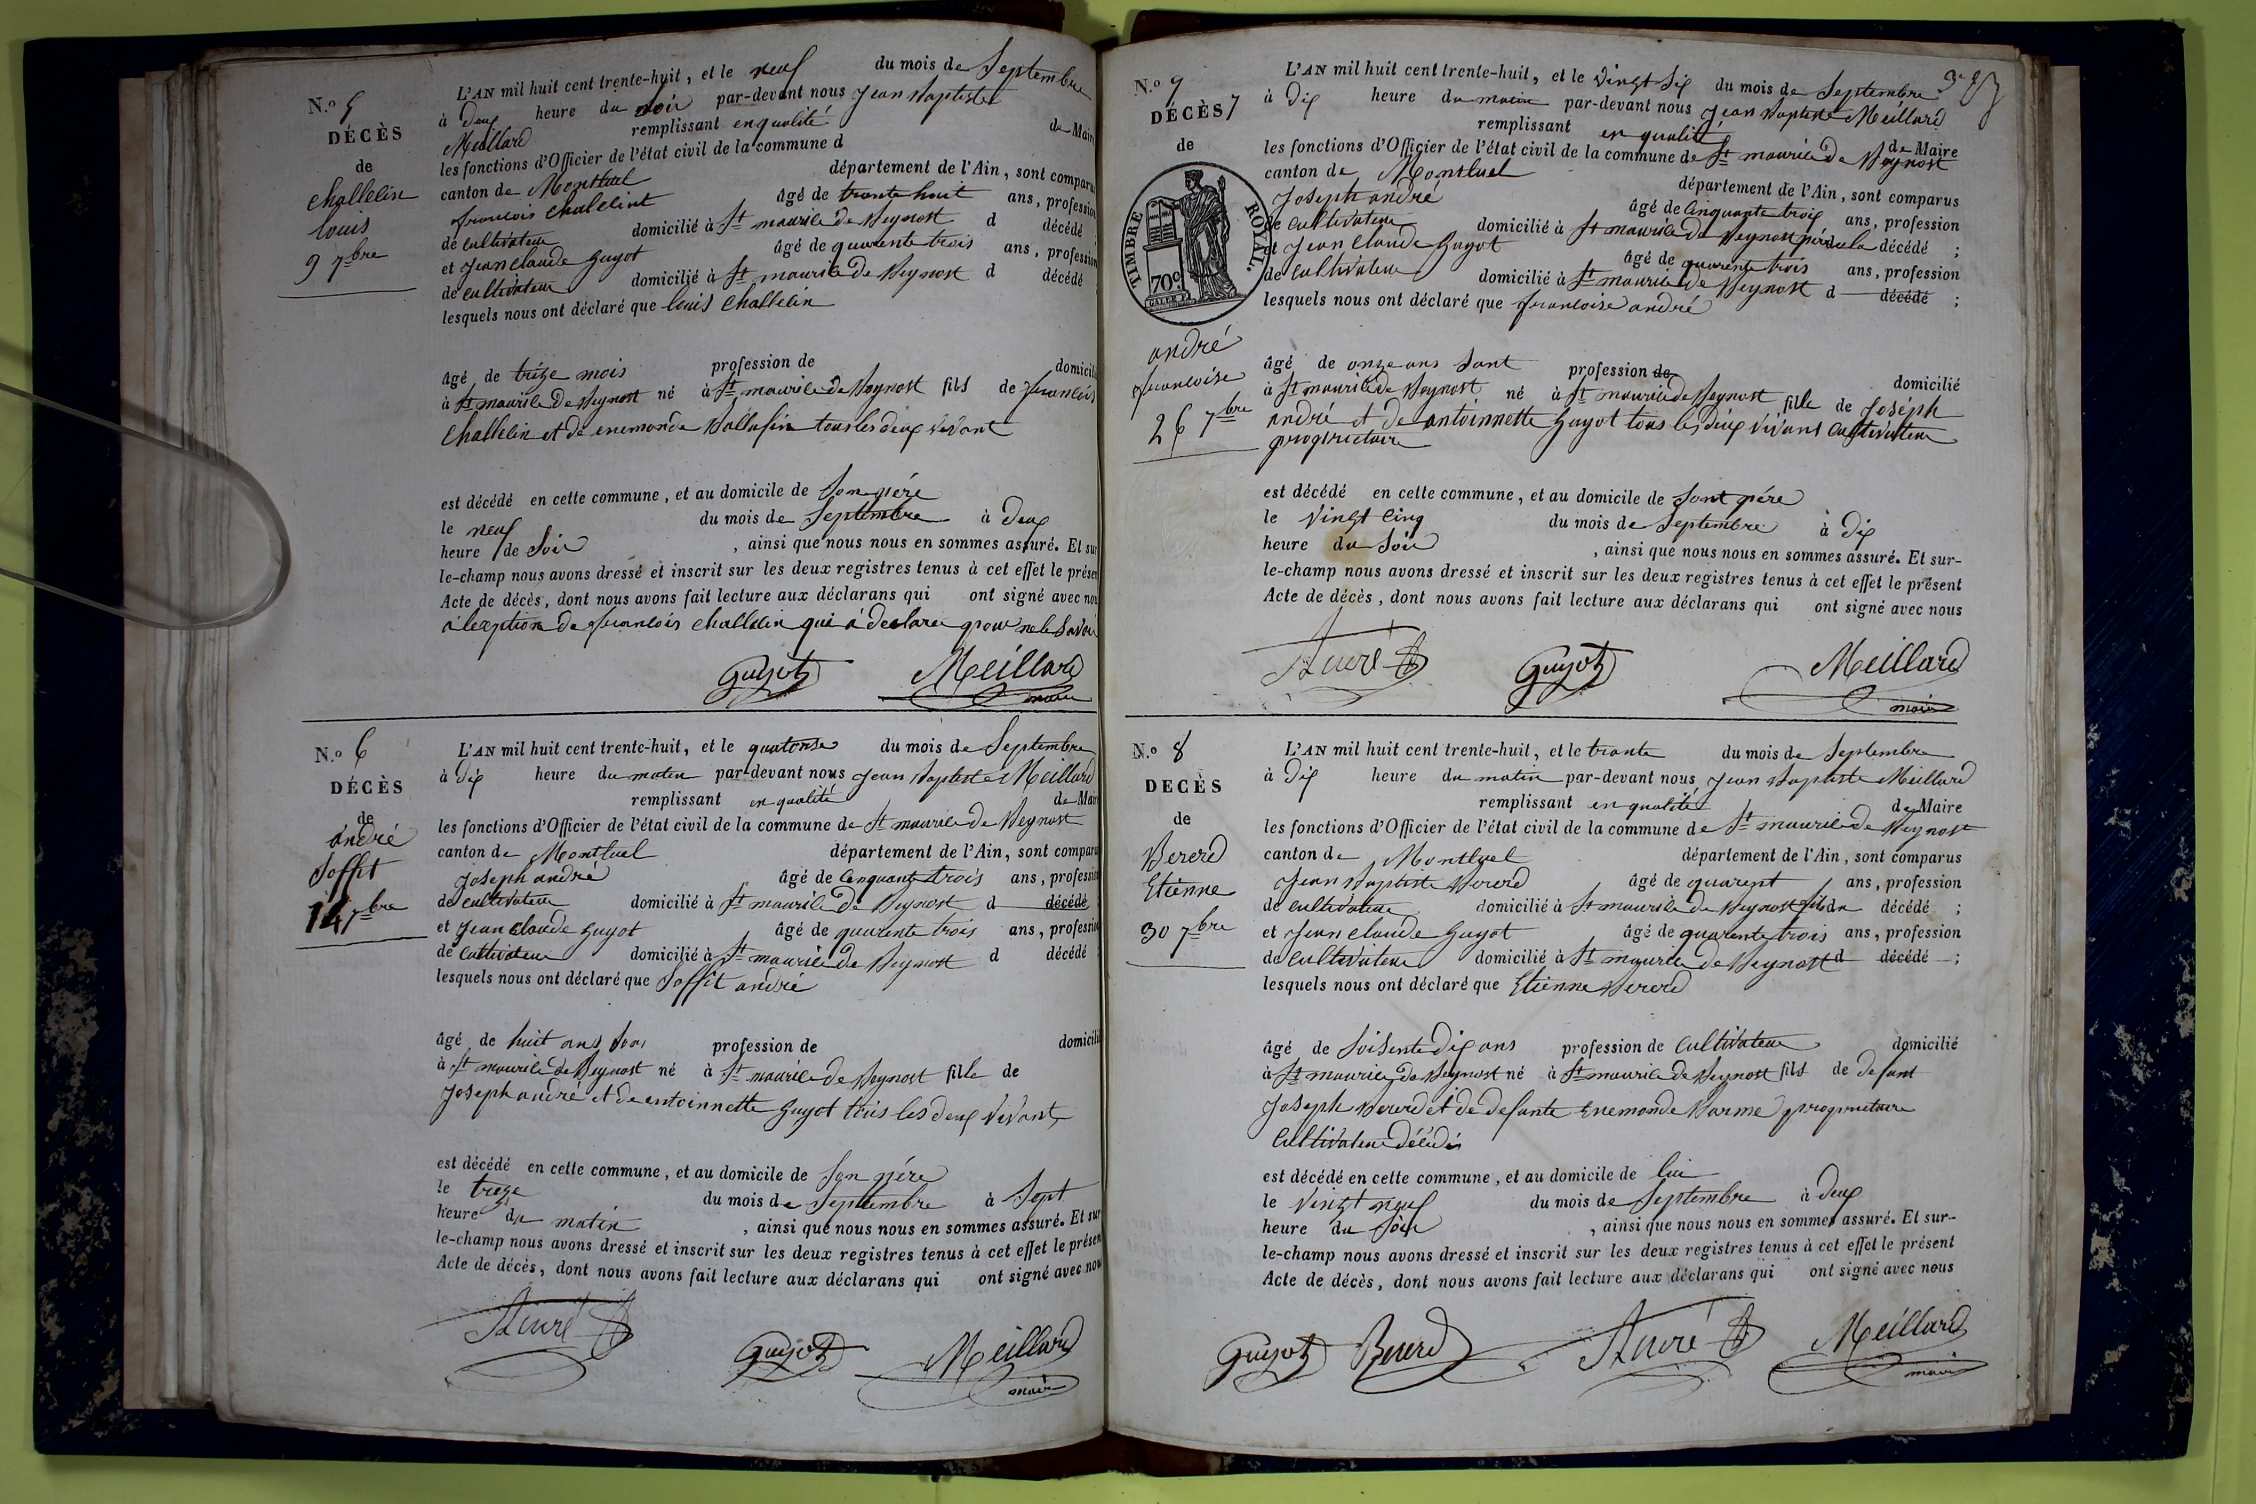 N.º 5
DÉCÈS
de
Challelin
louis
9 7bre
L'AN mil huit cent trente-huit, et le neuf du mois de Septembre
à deux heure du soir par-devant nous Jean Baptiste
Meillard remplissant en qualité de Maire
les fonctions d'Officier de l'état civil de la commune d
canton de Montluel département de l'Ain, sont comparu
francois Challelint âgé de trante huit ans, profession
de Cultivateur domicilié à St maurice De Beynost d décédé
et Jean Claude Guyot âgé de quarente trois ans, profession
de Cultivateur domicilié à St maurice De Beynost d décédé
lesquels nous ont déclaré que louis Challelin
âgé de trèze mois profession de domicili
à St maurice De Beynost né à St maurice De Beynost fils de francois
Challelin et de enemonde tous les deux vivant
est décédé en cette commune, et au domicile de Son père
le neuf du mois de Septembre à deux
heure de Soir , ainsi que nous nous en sommes assuré. Et sur
le-champ nous avons dressé et inscrit sur les deux registres tenus à cet effet le présen
Acte de décès, dont nous avons fait lecture aux déclarans qui ont signé avec nou
a lexption De francois Challelin qui à declarer pour ne le Savoir
Guyot Meillard
maire
N.º 6
DÉCÈS
de
andré
Soffit
14 7bre
L'AN mil huit cent trente-huit, et le quatorse du mois de Septembre
à dix heure du matin par-devant nous Jean Baptiste Meillard
remplissant en qualité de Mair
les fonctions d'Officier de l'état civil de la commune de St maurice De Beynost
canton de Montluel département de l'Ain, sont comparu
Joseph andré âgé de Cenquante trois ans, professio
de Cultivateur domicilié à St maurice De Beynost d décédé
et Jean Claude Guyot âgé de quarente trois ans, professio
de Cultivateur domicilié à St maurice de Beynost d décédé
lesquels nous ont déclaré que Soffit andré
âgé de huit ans profession de domicili
à St maurice De Beynost né à St maurice De Beynost fille de
Joseph andré et De antoinnette Guyot tous les deux vivant
est décédé en cette commune, et au domicile de Son père
le treze du mois de Septembre à Sept
heure du matin , ainsi que nous nous en sommes assuré. Et sur
le-champ nous avons dressé et inscrit sur les deux registres tenus à cet effet le présen
Acte de décès, dont nous avons fait lecture aux déclarans qui ont signé avec nou
André Guyot Meillard
maire
N.º 7
DÉCÈS 7
de
TIMBRE ROYAL.
70c
andré
francoise
26 7bre
L'AN mil huit cent trente-huit, et le vingt six du mois de Septembre
à dix heure du matin par-devant nous Jean Baptiste Meillard
remplissant en qualité de Maire
les fonctions d'Officier de l'état civil de la commune de St maurice De Beynost
canton de Montluel département de l'Ain, sont comparus
Joseph andré âgé de Cinquante trois ans, profession
de Cultivateur domicilié à St maurice De Beynost père de la décédé ;
et Jean Claude Guyot âgé de quarente trois ans, profession
de Cultivateur domicilié à St maurice De Beynost d décédé ;
lesquels nous ont déclaré que francoise andré
âgé de onze ans Sant profession de domicilié
à St maurice De Beynost né à St maurice De Beynost fille de Joséph
andré et De antoinnette Guyot tous les deux vivant Cultivateur
propriétaire
est décédé en cette commune, et au domicile de Sont père
le vingt Cinq du mois de Septembre à dix
heure du Soir , ainsi que nous nous en sommes assuré. Et sur-
le-champ nous avons dressé et inscrit sur les deux registres tenus à cet effet le présent
Acte de décès, dont nous avons fait lecture aux déclarans qui ont signé avec nous
André Guyot Meillard
maire
N.º 8
DECÈS
de
Bererd
Etienne
30 7bre
L'AN mil huit cent trente-huit, et le trante du mois de Septembre
à dix heure du matin par-devant nous Jean Baptiste Meillard
remplissant en qualité de Maire
les fonctions d'Officier de l'état civil de la commune de St maurice De Beynost
canton de Montluel département de l'Ain, sont comparus
Jean Baptiste Bererd âgé de quarent ans, profession
de Cultivateur domicilié à St maurice De Beynost fils du décédé ;
et Jean Claude Guyot âgé de quarente trois ans, profession
de Cultivateur domicilié à St maurice De Beynost d décédé ;
lesquels nous ont déclaré que Etienne Bererd
âgé de Soisente dix ans profession de Cultivateur domicilié
à St maurice De Beynost né à St maurice De Beynost fils de defunt
Joseph Bererd et de defunte Enemonde propriétaire
Cultivateur décédés
est décédé en cette commune, et au domicile de lui
le vingt neuf du mois de Septembre à deux
heure du Soir , ainsi que nous nous en sommes assuré. Et sur-
le-champ nous avons dressé et inscrit sur les deux registres tenus à cet effet le présent
Acte de décès, dont nous avons fait lecture aux déclarans qui ont signé avec nous
Guyot Bererd André Meillard
maire